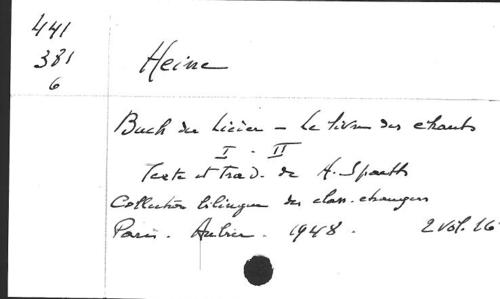 441
381
6
Heine
Buch der Lieder - Le livre des chants
I - II
Texte et trad. de A. Spaeth
Collection bilingue des class. étrangers
Paris. Aubier. 1948. 2 vol. 16